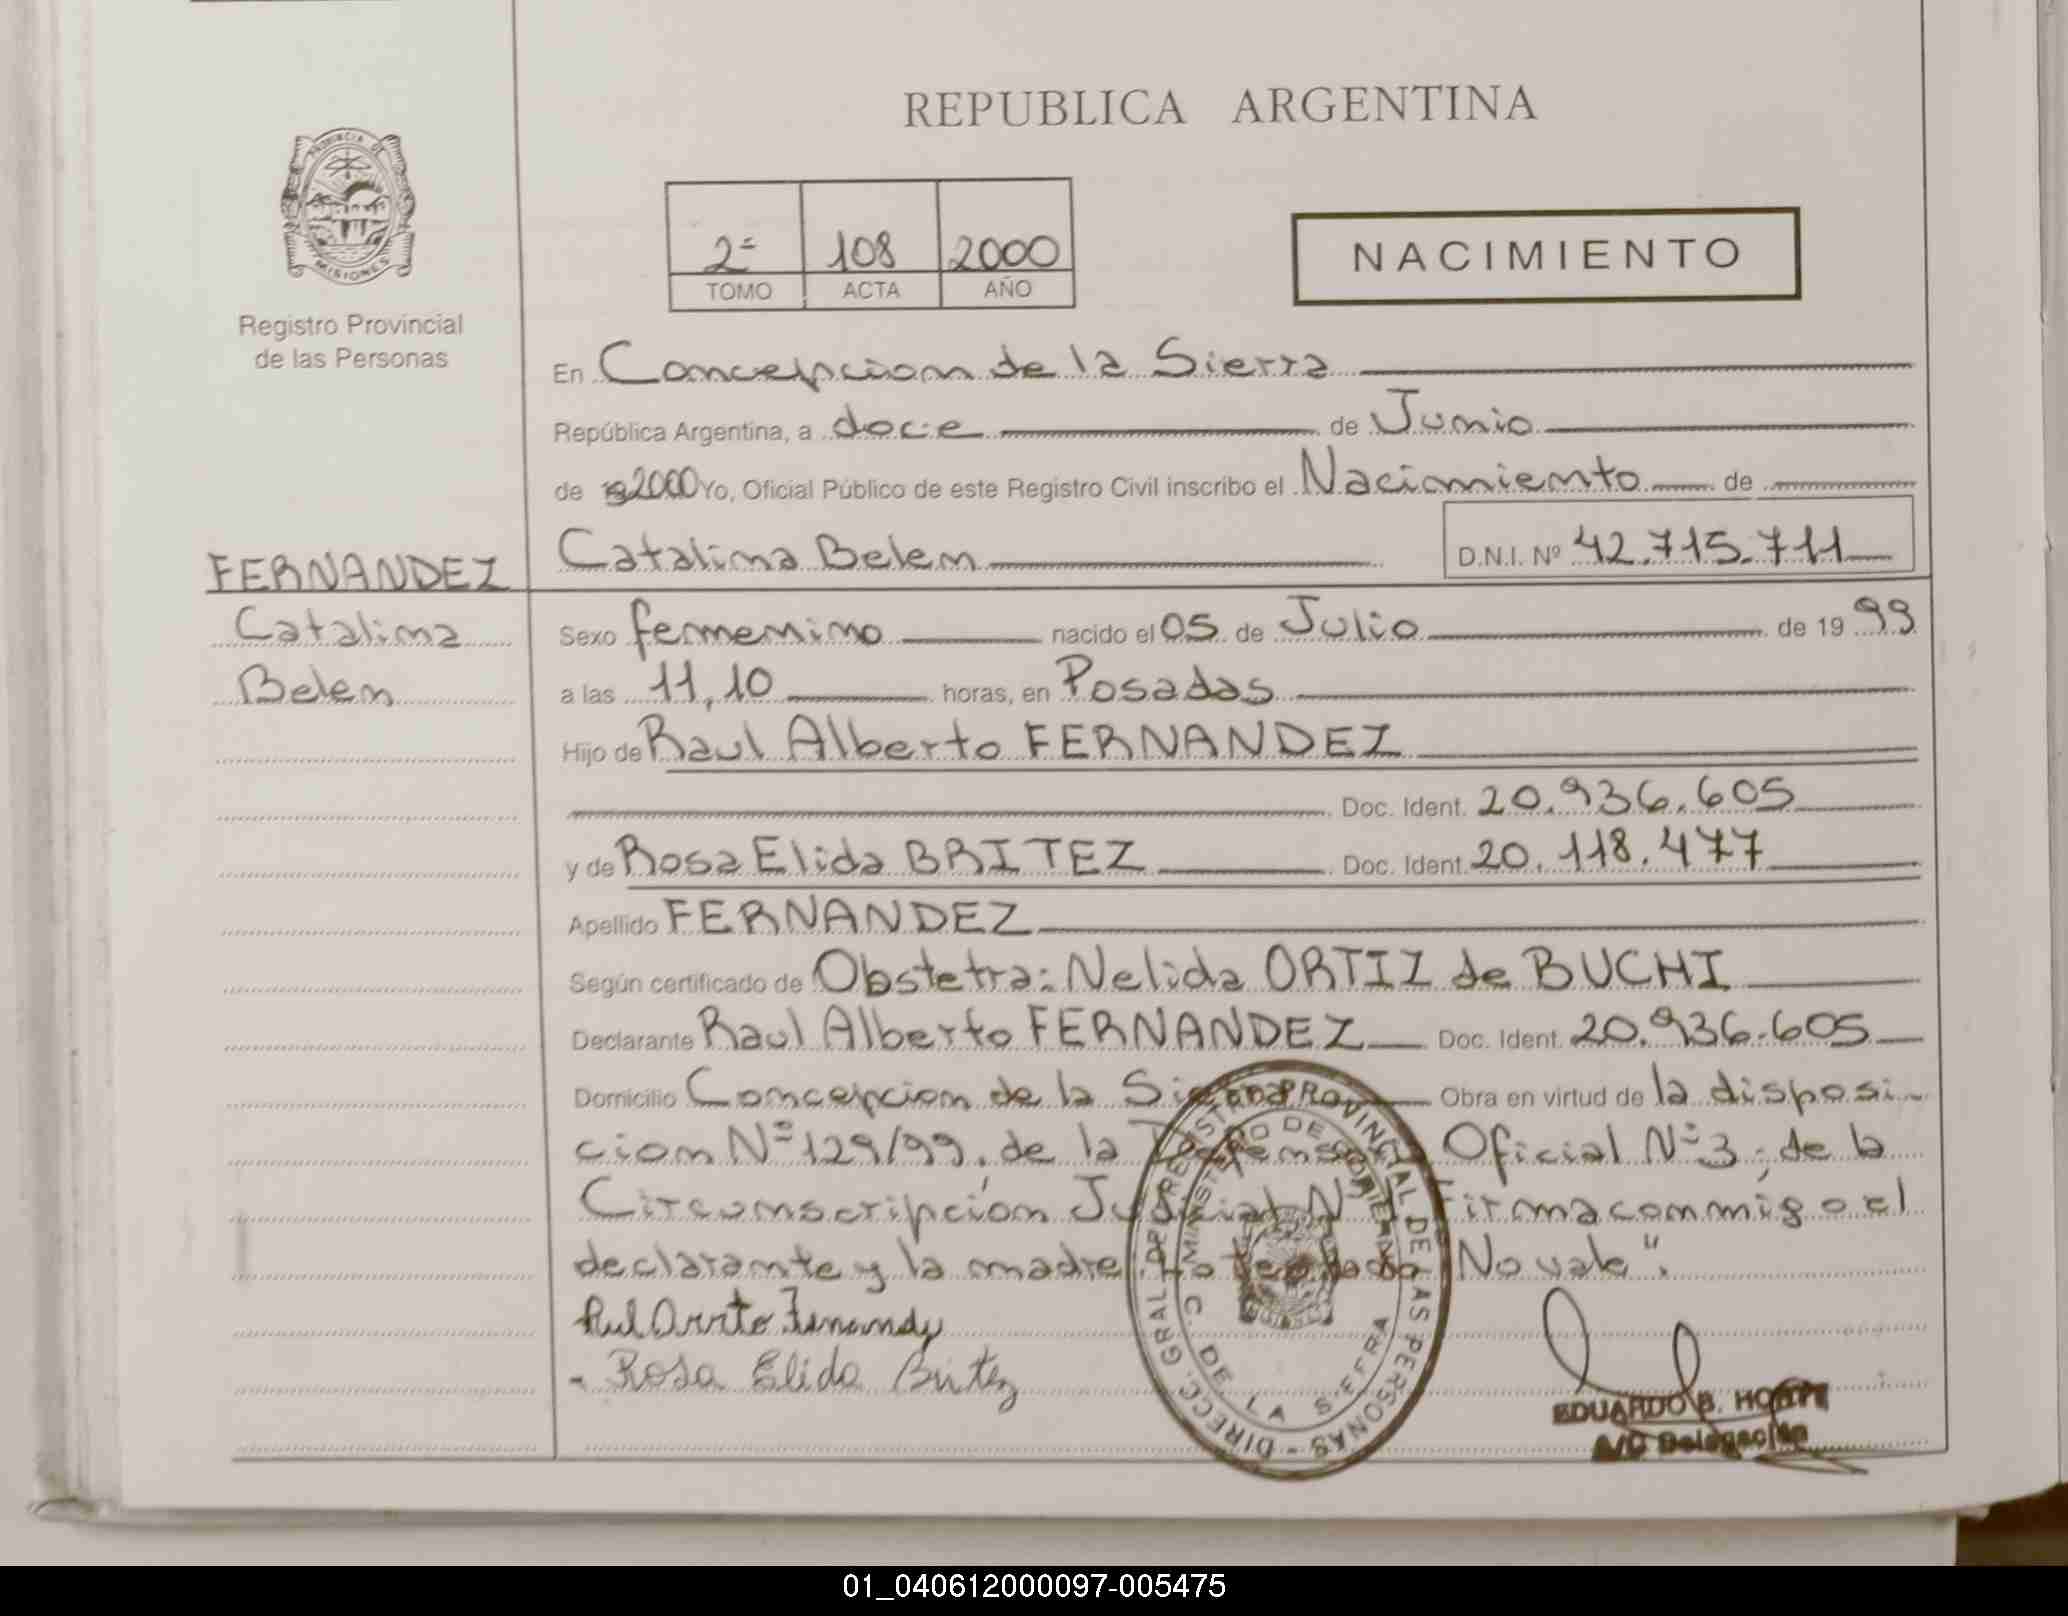 REPUBLICA ARGENTINA
PROVINCIA DE
MISIONES
Registro Provincial
de las Personas
2º 108 2000
TOMO ACTA AÑO
NACIMIENTO
En Concepcion de la Sierra
República Argentina, a doce de Junio
de 2000 Yo, Oficial Público de este Registro Civil inscribo el Nacimiento de
Catalina Belen D.N.I. Nº 42.715.711
FERNANDEZ
Catalina
Belen
Sexo femenino nacido el 05 de Julio de 1999
a las 11,10 horas, en Posadas
Hijo de Raul Alberto FERNANDEZ
Doc. Ident. 20.936.605
y de Rosa Elida BRITEZ Doc. Ident. 20.118.477
Apellido FERNANDEZ
Según certificado de Obstetra: Nelida ORTIZ de BUCHI
Declarante Raul Alberto FERNANDEZ Doc. Ident. 20.936.605
Domicilio Concepcion de la Sierra Obra en virtud de la disposi-
cion Nº 129/99, de la Oficial Nº 3, de la
Circumscripción Judicial Nº Firma conmigo el
declarante y la madre. Lo testado "No vale".
Fernandez
- Rosa Elida Britez
DIRECC. GRAL DE REGISTRO PROVINCIAL DE LAS PERSONAS
MINISTERIO DE GOBIERNO
C. DE LA SIERRA
EDUARDO B.
A/C Delegación
01_040612000097-005475